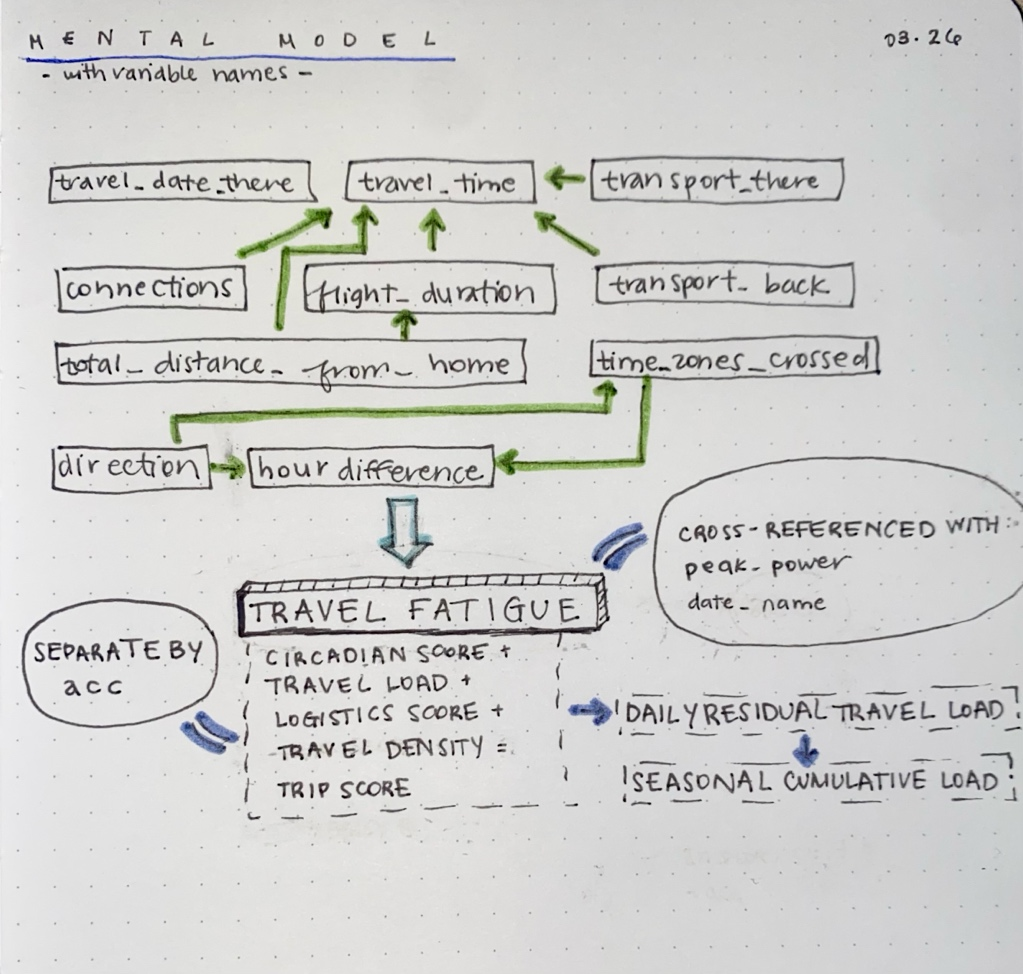 MENTAL MODEL
03.26
- with variable names -
travel_date_there
travel_time
transport_there
connections
flight_duration
transport_back
total_distance_from_home
time_zones_crossed
direction
hour difference
CROSS-REFERENCED WITH:
peak_power
date_name
TRAVEL FATIGUE
SEPARATE BY
acc
CIRCADIAN SCORE +
TRAVEL LOAD +
LOGISTICS SCORE +
TRAVEL DENSITY =
TRIP SCORE
DAILY RESIDUAL TRAVEL LOAD
SEASONAL CUMULATIVE LOAD